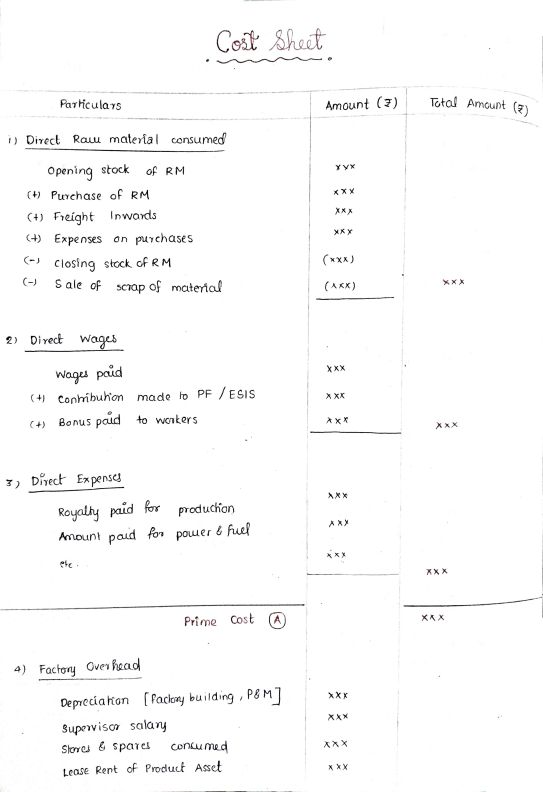 Cost Sheet
Particulars Amount (₹) Total Amount (₹)
1) Direct Raw material consumed
Opening stock of RM xxx
(+) Purchase of RM xxx
(+) Freight Inwards xxx
(+) Expenses on purchases xxx
(-) Closing stock of RM (xxx)
(-) Sale of scrap of material (xxx) xxx
2) Direct Wages
Wages paid xxx
(+) Contribution made to PF / ESIS xxx
(+) Bonus paid to workers xxx xxx
3) Direct Expenses
Royalty paid for production xxx
Amount paid for power & fuel xxx
etc. xxx
xxx
Prime Cost (A) xxx
4) Factory Overhead
Depreciation [Factory building, P&M] xxx
Supervisor salary xxx
Stores & spares consumed xxx
Lease Rent of Product Asset xxx